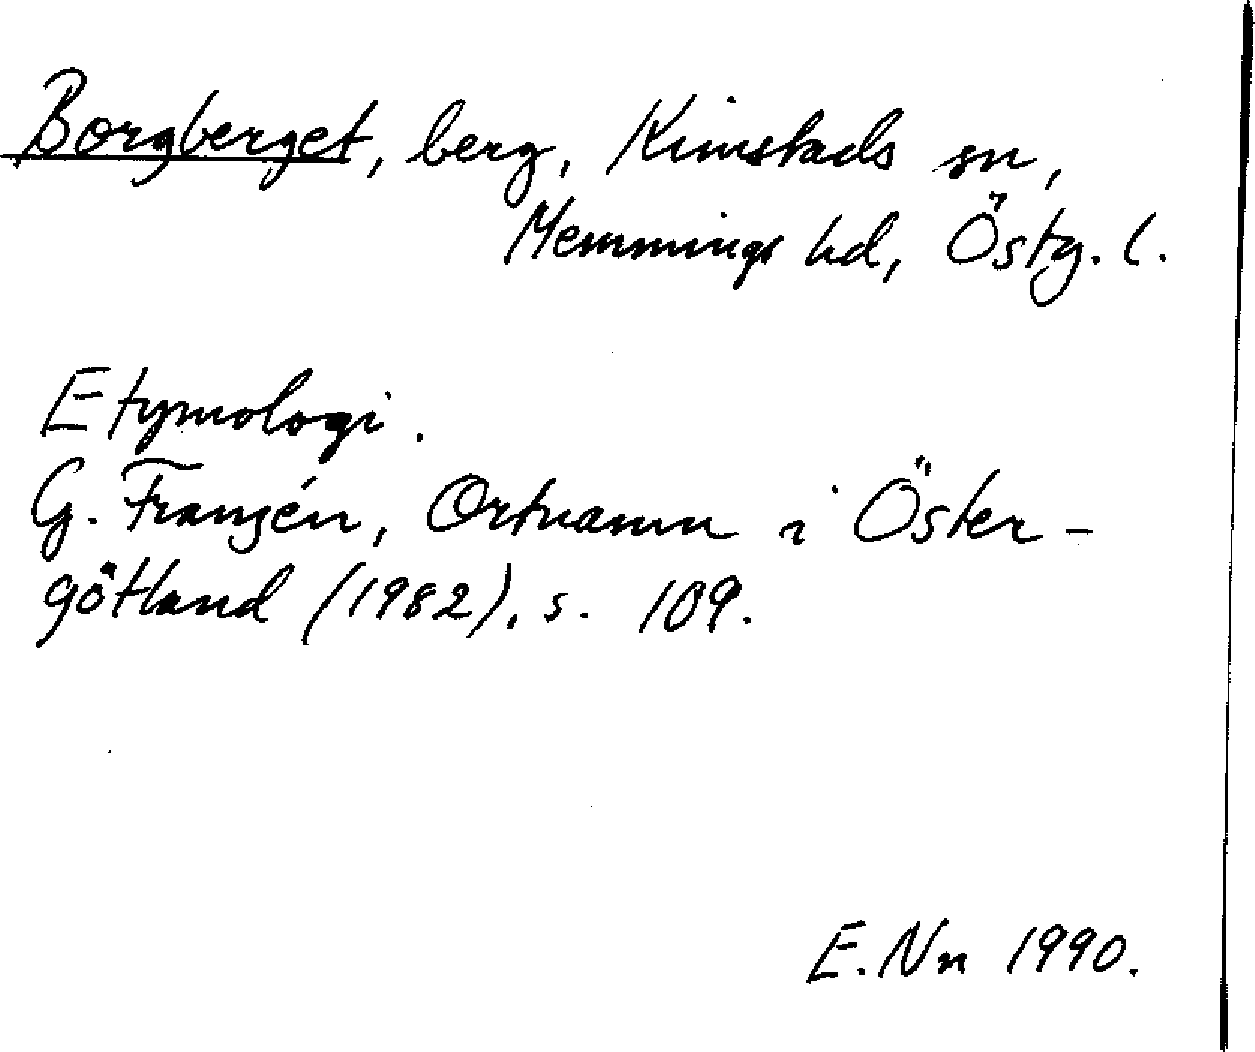 Borgberget, berg, Kimstads sn,
Memmings hd, Östg. l.
Etymologi.
G. Franzén, Ortnamn i Öster-
götland (1982), s. 109.
E. Nn 1990.